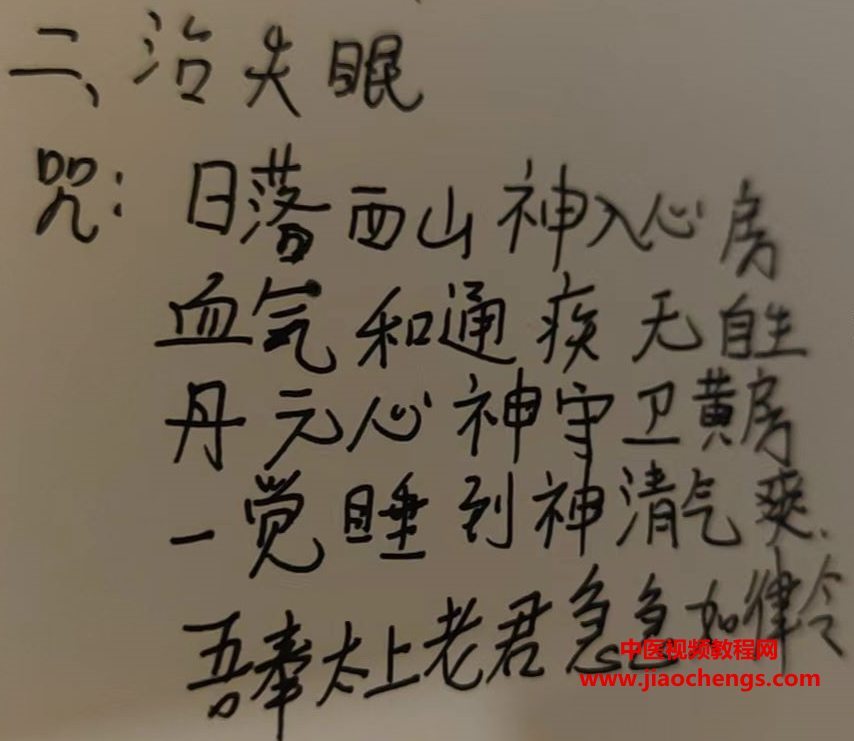 二、治失眠
咒：日落西山神入心房
血气和通疾无自生
丹元心神守卫黄房
一觉睡到神清气爽.
吾奉太上老君急急如律令
中医视频教程网
www.jiaochengs.com